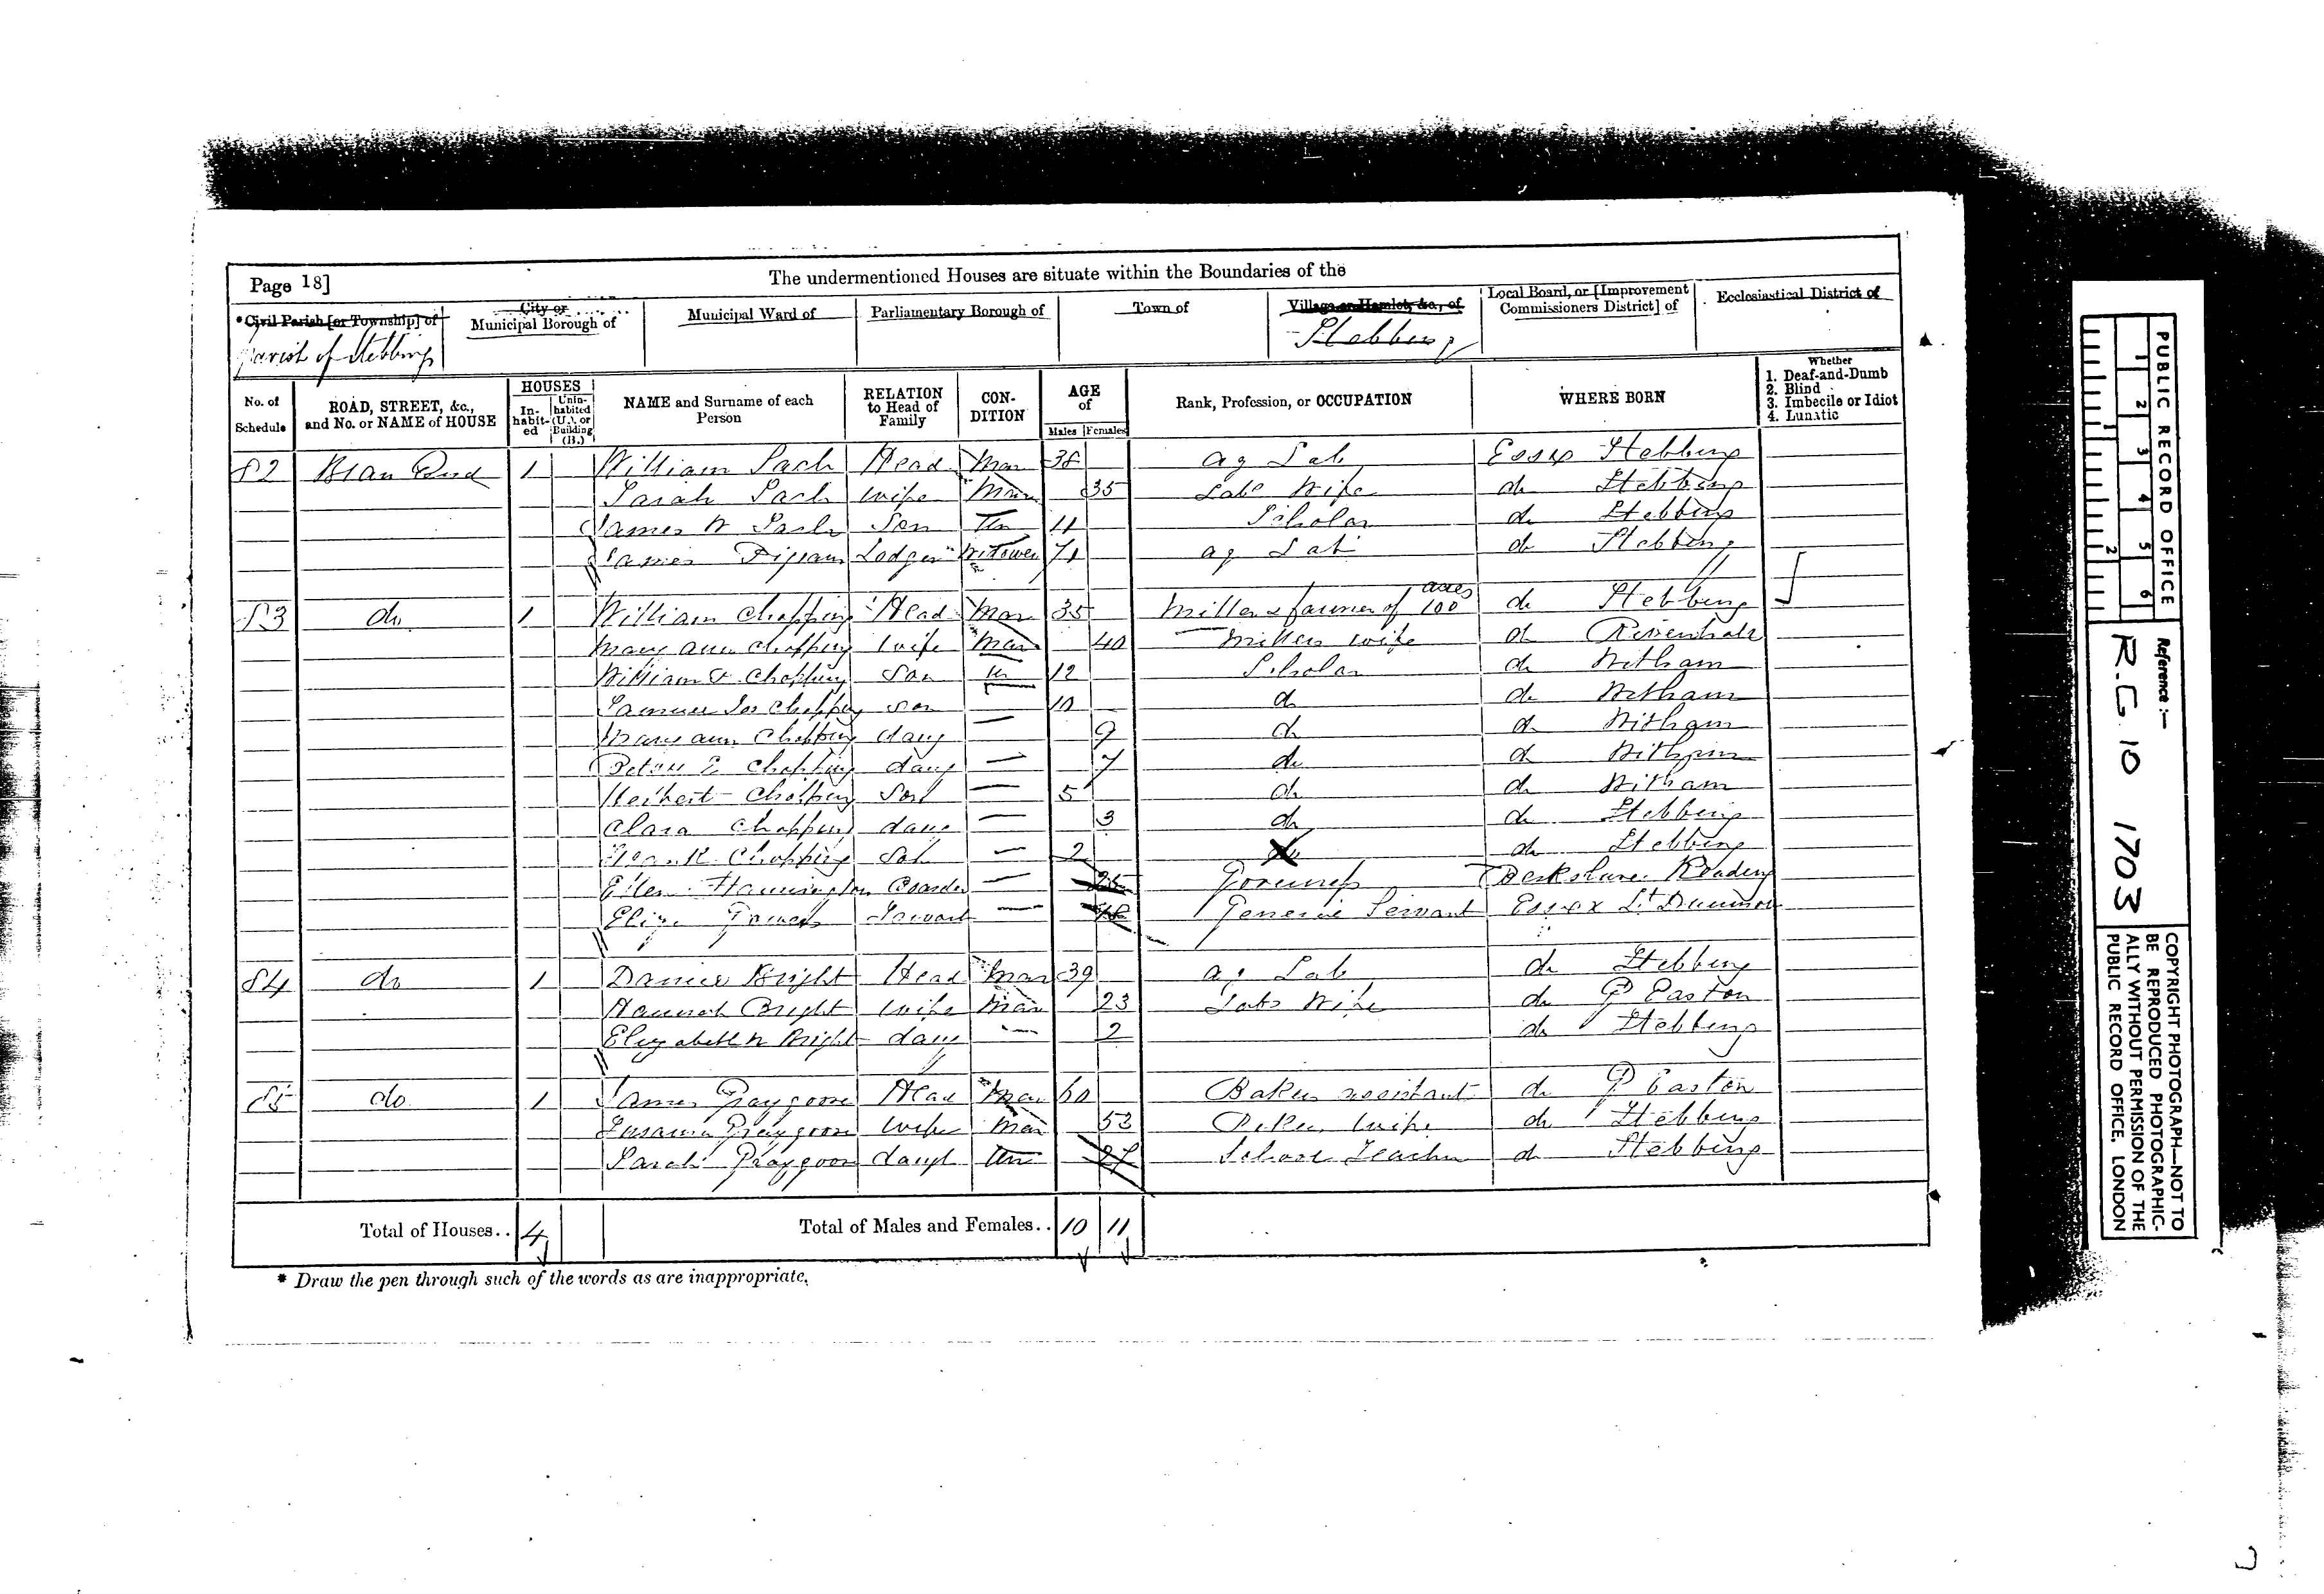 Page 18] The undermentioned Houses are situate within the Boundaries of the
* Civil Parish [or Township] of City or Municipal Borough of Municipal Ward of Parliamentary Borough of Town of Village or Hamlet, &c., of Local Board, or [Improvement Commissioners District] of Ecclesiastical District of
Parish of Stebbing Stebbing
No. of Schedule ROAD, STREET, &c., and No. or NAME of HOUSE HOUSES In-habit-ed Unin-habited (U.), or Building (B.) NAME and Surname of each Person RELATION to Head of Family CON-DITION AGE of Males Females Rank, Profession, or OCCUPATION WHERE BORN Whether 1. Deaf-and-Dumb 2. Blind 3. Imbecile or Idiot 4. Lunatic
82 Bran End 1 William Sach Head Mar 38 Ag Lab Essex Stebbing
Sarah Sach Wife Mar 35 Labs Wife do Stebbing
James W Sach Son Un 11 Scholar do Stebbing
James Lodger Widower 71 Ag Lab do Stebbing
83 do 1 William Chopping Head Mar 35 Miller & farmer of 100 acres do Stebbing
Mary Ann Chopping Wife Mar 40 Millers wife do Rivenhall
William Chopping Son Un 12 Scholar do Witham
Samuel Chopping Son 10 do do Witham
Mary Ann Chopping daug — 9 do do Witham
E Chopping daug — 7 do do Witham
Herbert Chopping Son — 5 do do Witham
Clara Chopping daug — 3 do do Stebbing
Frank Chopping Son — 2 do do Stebbing
Ellen Hannington Boarder — 25 Governess Berkshire Reading
Eliza Servant — 18 General Servant Essex Lt Dunmow
84 do 1 Daniel Bright Head Mar 39 Ag Lab do Stebbing
Hannah Bright Wife Mar 23 Labs Wife do Easton
Elizabeth Bright daug — 2 do Stebbing
85 do 1 James Graygoose Head Mar 60 Bakers assistant do Easton
Susanna Graygoose Wife Mar 53 Wife do Stebbing
Sarah Graygoose daugt Un 27 School Teacher do Stebbing
Total of Houses.. 4 Total of Males and Females.. 10 11
* Draw the pen through such of the words as are inappropriate.
PUBLIC RECORD OFFICE
1 2 3 4 5 6
1 2
Reference :—
R.G. 10 1703
COPYRIGHT PHOTOGRAPH—NOT TO
BE REPRODUCED PHOTOGRAPHIC-
ALLY WITHOUT PERMISSION OF THE
PUBLIC RECORD OFFICE, LONDON